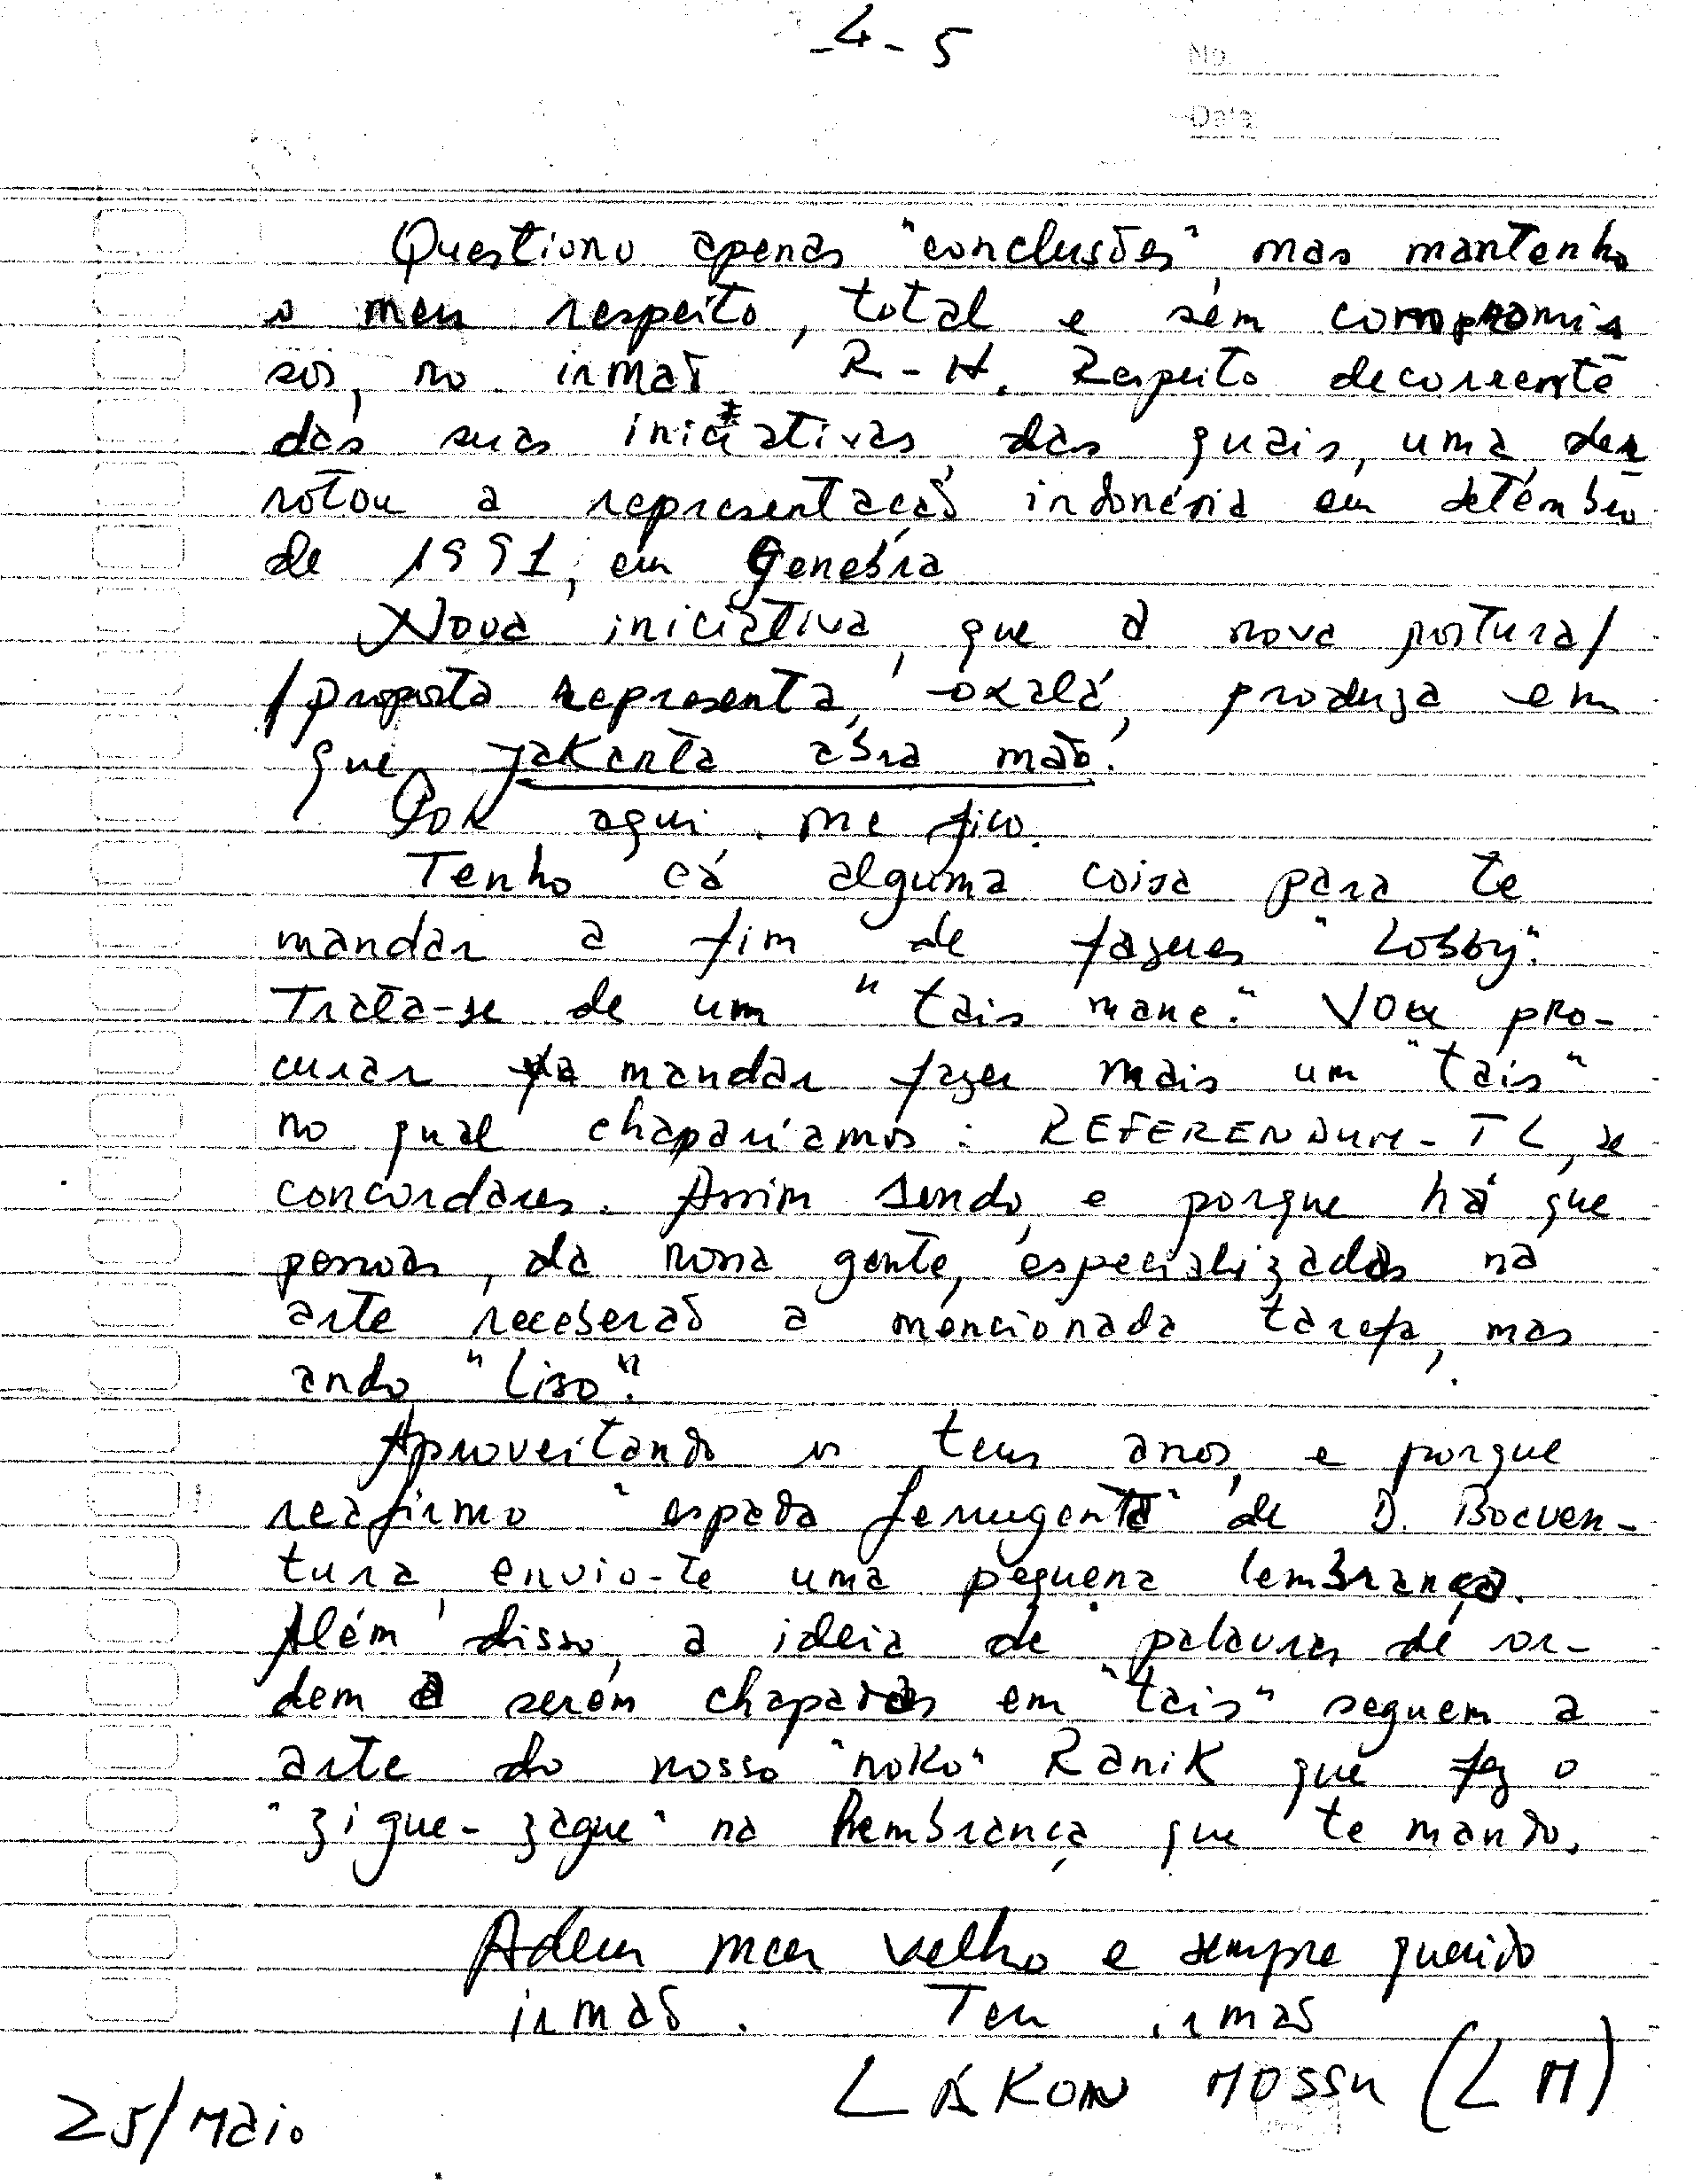 -4- 5
No.
Data
Questiono apenas "conclusões", mas mantenho
o meu respeito, total e sem compromis
sos, no irmão R-H. Respeito decorrente
das suas iniciativas, das quais, uma, der
rotou a representação indonésia em setembro
de 1991, em Genebra
Nova iniciativa, que a nova postura/
/proposta representa, oxalá, produza em
que Jakarta abra mão.
Por aqui me fico.
Tenho cá alguma coisa para te
mandar a fim de fazeres "Lobby".
Trata-se de um "tais mane". Vou pro-
curar mandar fazer mais um "tais"
no qual chapariamos: REFERENDUM-TL, se
concordares. Assim sendo, e porque há que
pessoas, da nossa gente, especializadas na
arte receberão a mencionada tarefa, mas
ando "liso".
Aproveitando os teus anos, e porque
reafirmo "espada ferrugenta" de D. Boaven-
tura, envio-te uma pequena lembrança.
Além disso, a ideia de palavras de or-
dem a serem chapadas em "tais" seguem a
arte do nosso "noko" Ranik que fez o
"zigue-zague" na lembrança que te mando.
Adeus meu velho e sempre querido
irmão. Teu irmão
LÁKON MOSSU (LM)
25/Maio